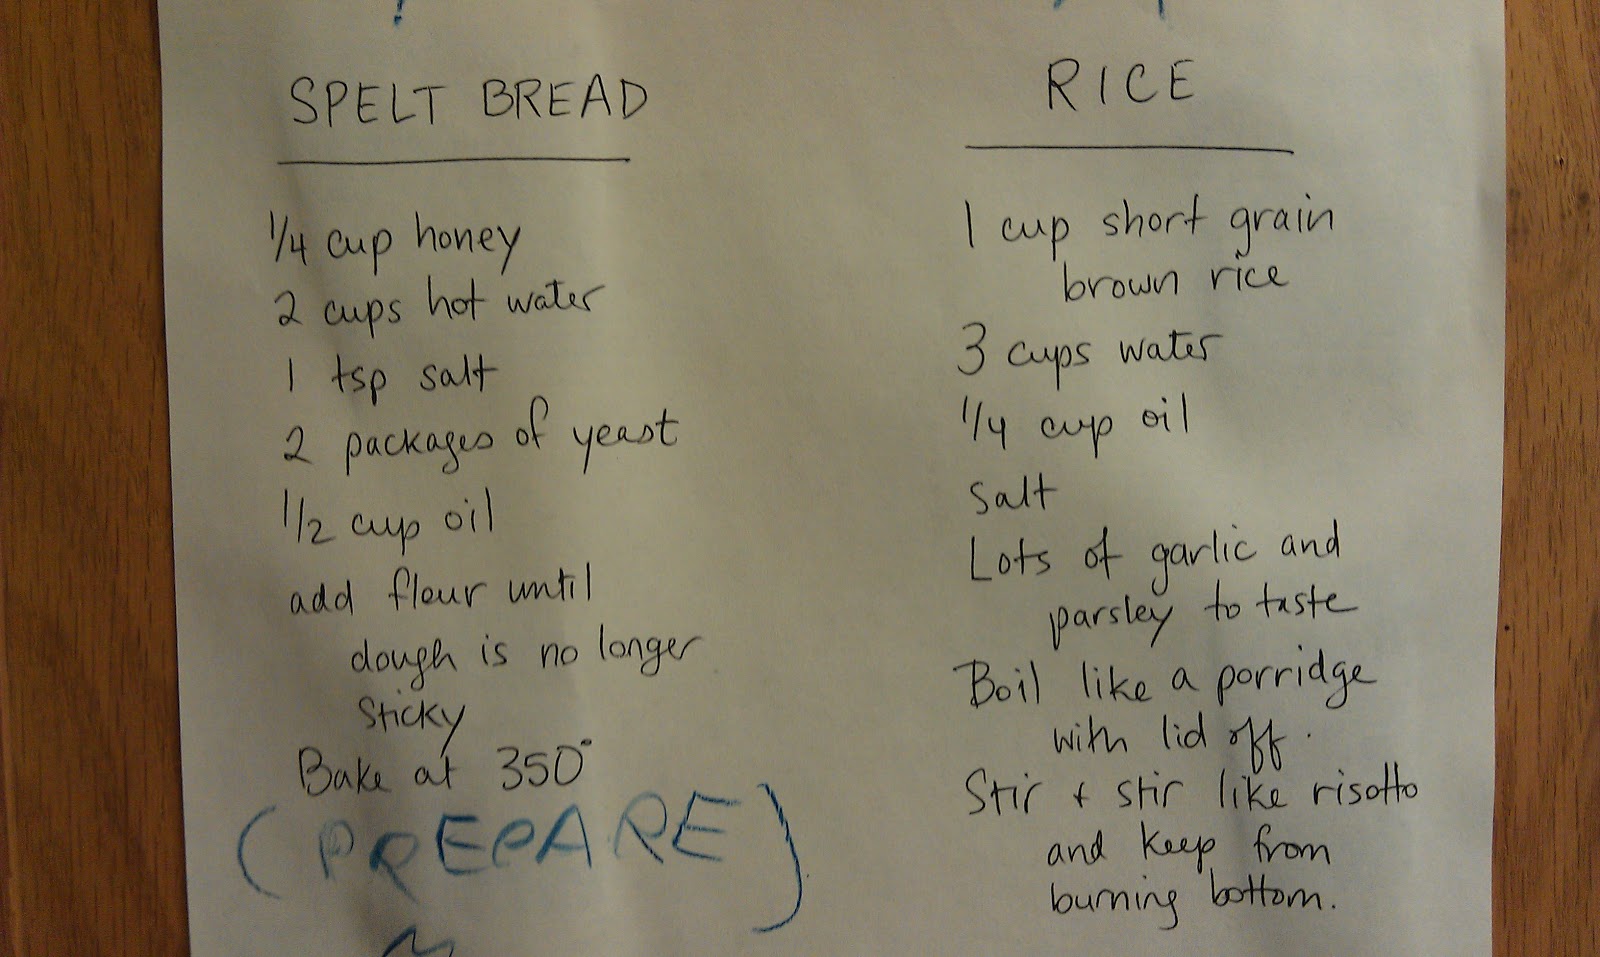 SPELT BREAD
1/4 cup honey
2 cups hot water
1 tsp salt
2 packages of yeast
1/2 cup oil
add flour until
dough is no longer
sticky
Bake at 350°
(PREPARE)
RICE
1 cup short grain
brown rice
3 cups water
1/4 cup oil
Salt
Lots of garlic and
parsley to taste
Boil like a porridge
with lid off.
Stir + stir like risotto
and keep from
burning bottom.